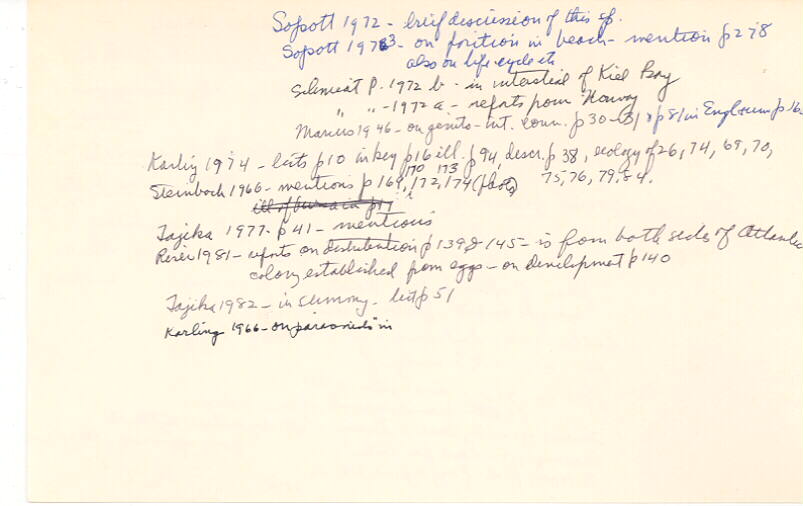 Sopott 1972 - brief discussion of this sp.
Sopott 1973 - on position in beach - mention p 278
also on life-cycle etc
Schmidt P. 1972 b - in interstitial of Kiel Bay
" " - 1972 a - reports from Norway
Marcus 1946 - on genito-int. conn. p 30-31, p 81 in Engl. sum p 16
Karling 1974 - lists p 10 in key p 16 ill. p 94, descr. p 38, ecology of 26, 74, 69, 70,
75, 76, 79, 84.
Steinböck 1966 - mentions p 169, 170, 172, 173, 174 (photo)
Tajika 1977 - p 41 - mentions
Reise 1981 - reports on distribution p 139 & 145 - is from both sides of Atlantic
colony established from eggs - on development p 140
Tajika 1982 - in summary - list p 51
Karling 1966 - on in